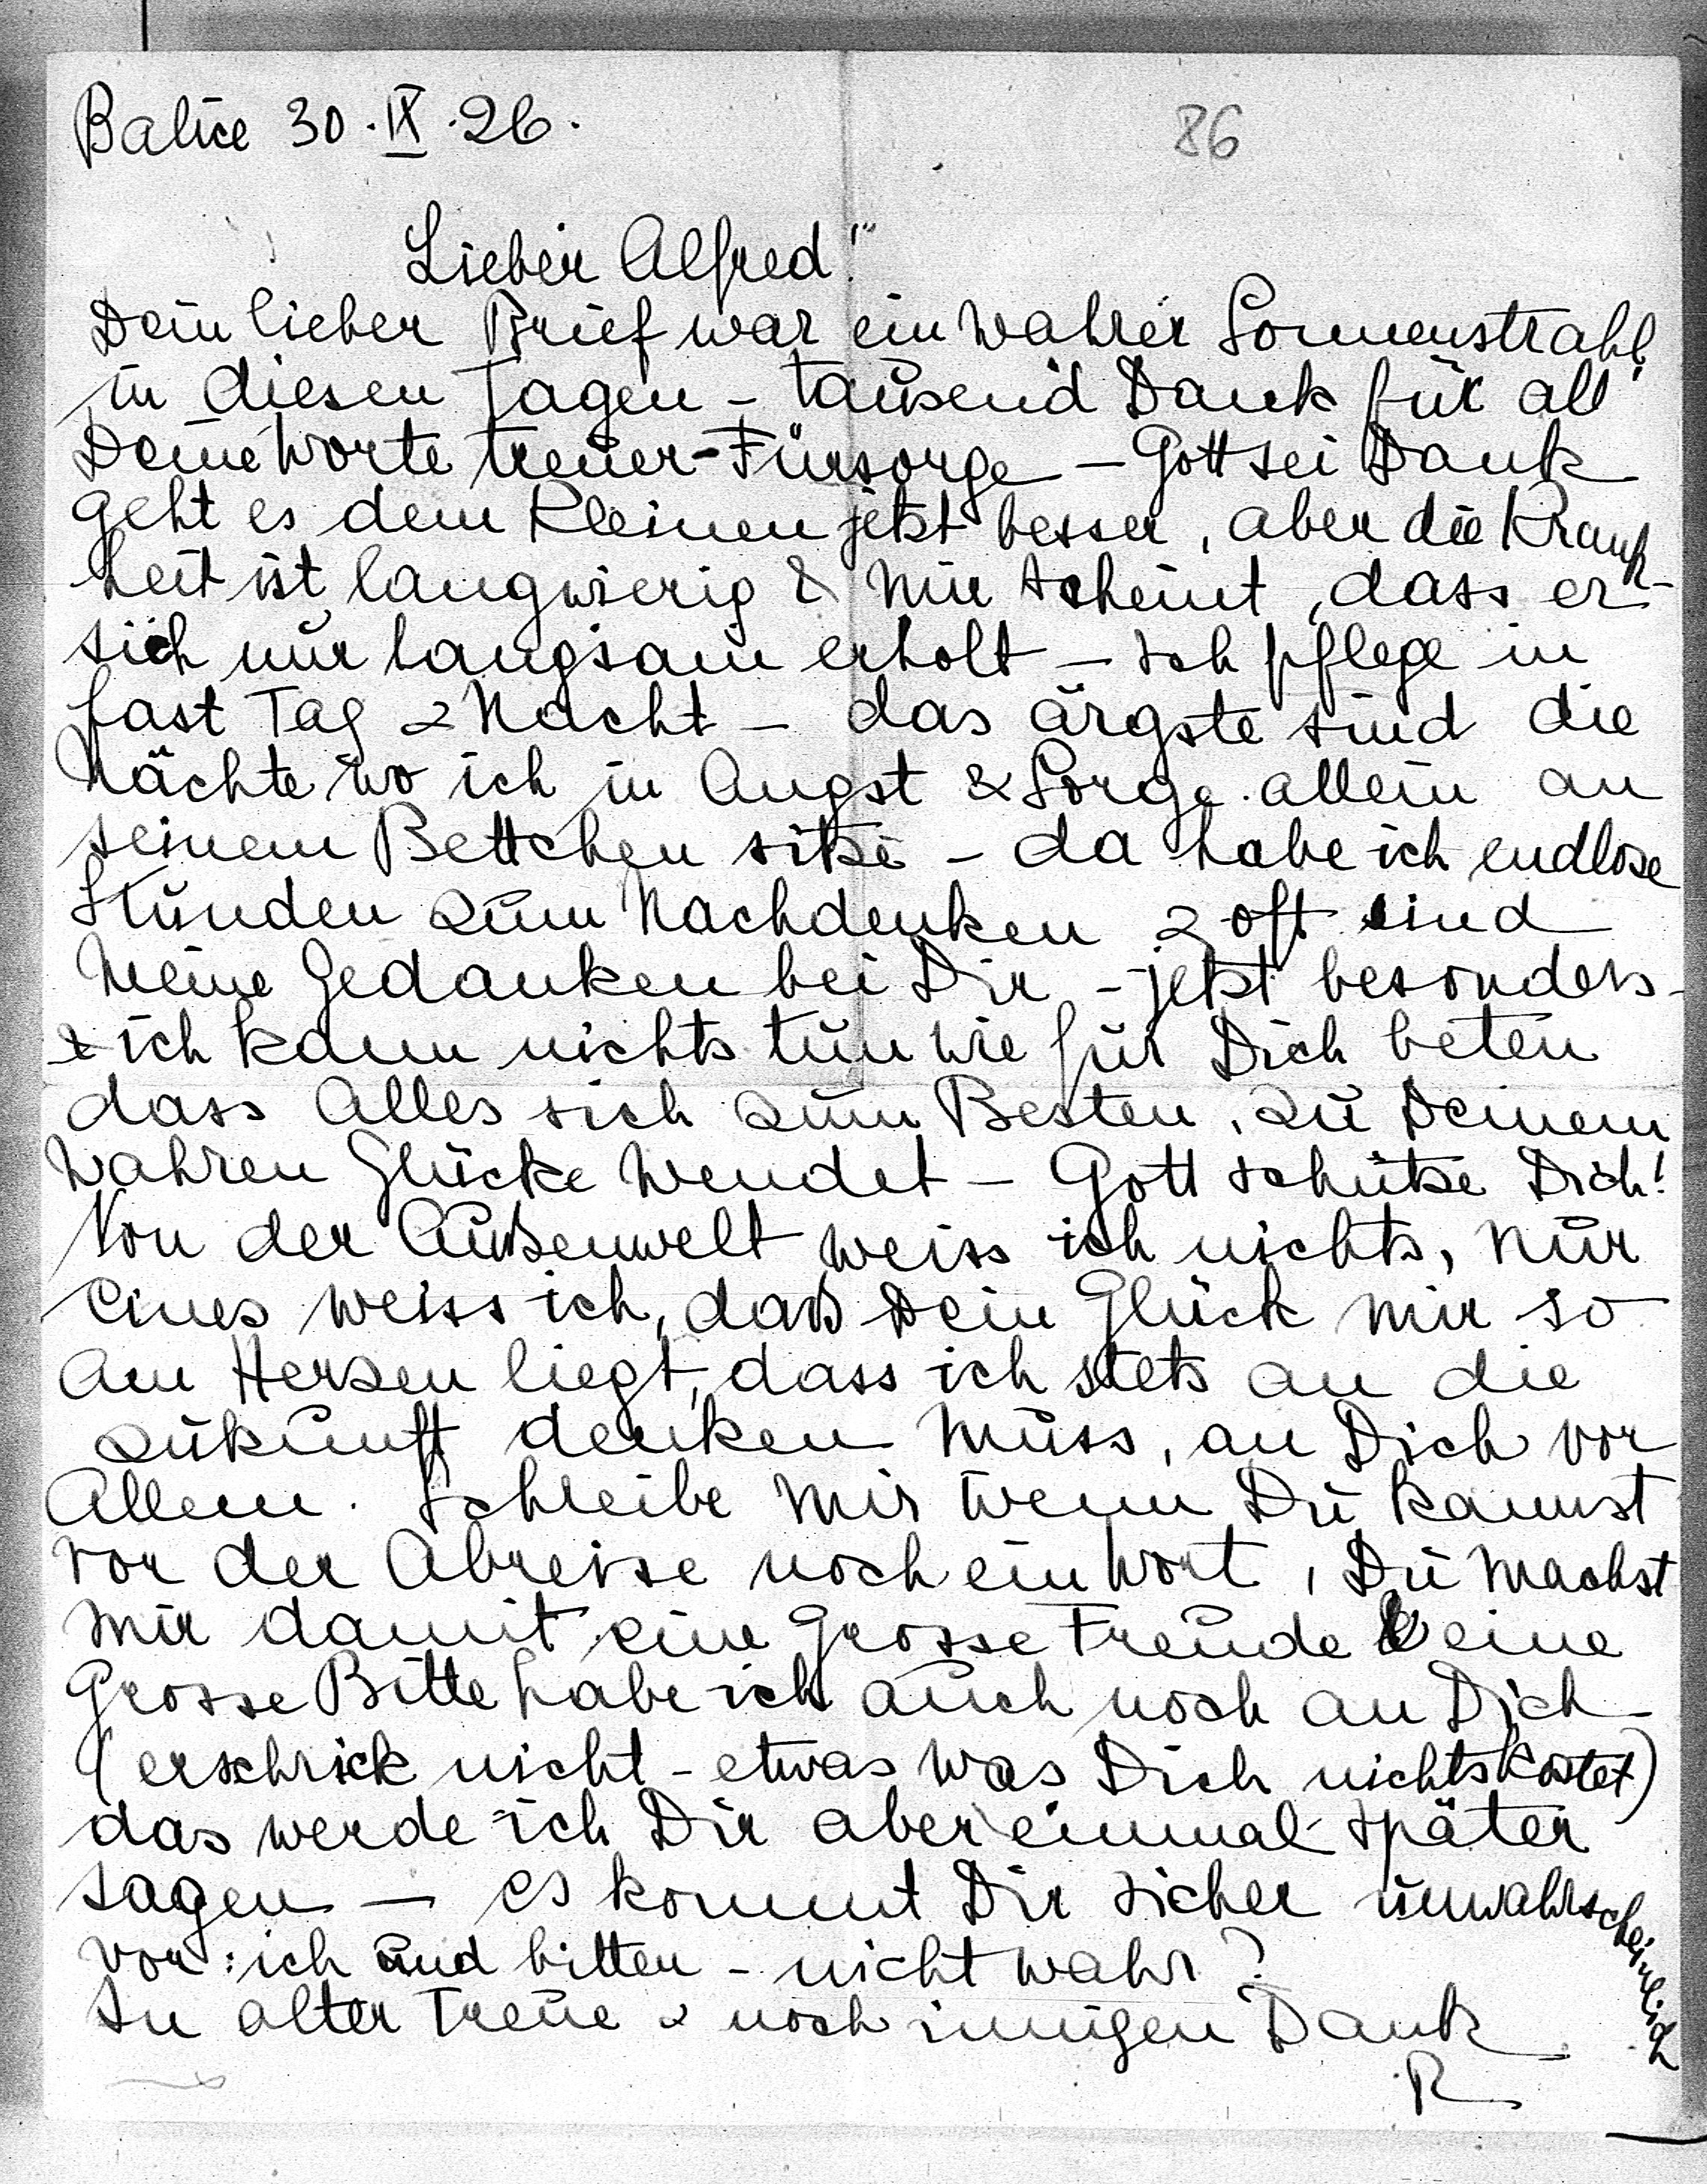 Balice 30.IX.26.
86
Lieber Alfred!
Dein lieber Brief war ein wahrer Sonnenstrahl
in diesen Tagen - tausend Dank für all'
Deine Worte treuer Fürsorge - Gott sei Dank
geht es dem Kleinen jetzt besser, aber die Krank-
heit ist langwierig & mir scheint, dass er
sich nur langsam erholt - ich pflege in
fast Tag & Nacht - das ärgste sind die
Nächte wo ich in Angst & Sorge allein an
seinem Bettchen sitze - da habe ich endlose
Stunden zum Nachdenken & oft sind
meine Gedanken bei Dir - jetzt besonders -
& ich kann nichts tun wie für Dich beten
dass Alles sich zum Besten, zu Deinem
wahren Glücke wendet - Gott schütze Dich!
Von der Außenwelt weiss ich nichts, nur
Eines weiss ich, daß Dein Glück mir so
am Herzen liegt, dass ich stets an die
Zukunft denken muss, an Dich vor
Allem. Schreibe mir wenn Du kannst
vor der Abreise noch ein Wort, Du machst
mir damit eine grosse Freude & eine
grosse Bitte habe ich auch noch an Dich
(erschrick nicht - etwas was Dich nichts kostet)
das werde ich Dir aber einmal später
sagen - es kommt Dir sicher unwahrscheinlich
vor: ich und bitten - nicht wahr?
In alter Treue & noch innigen Dank
R